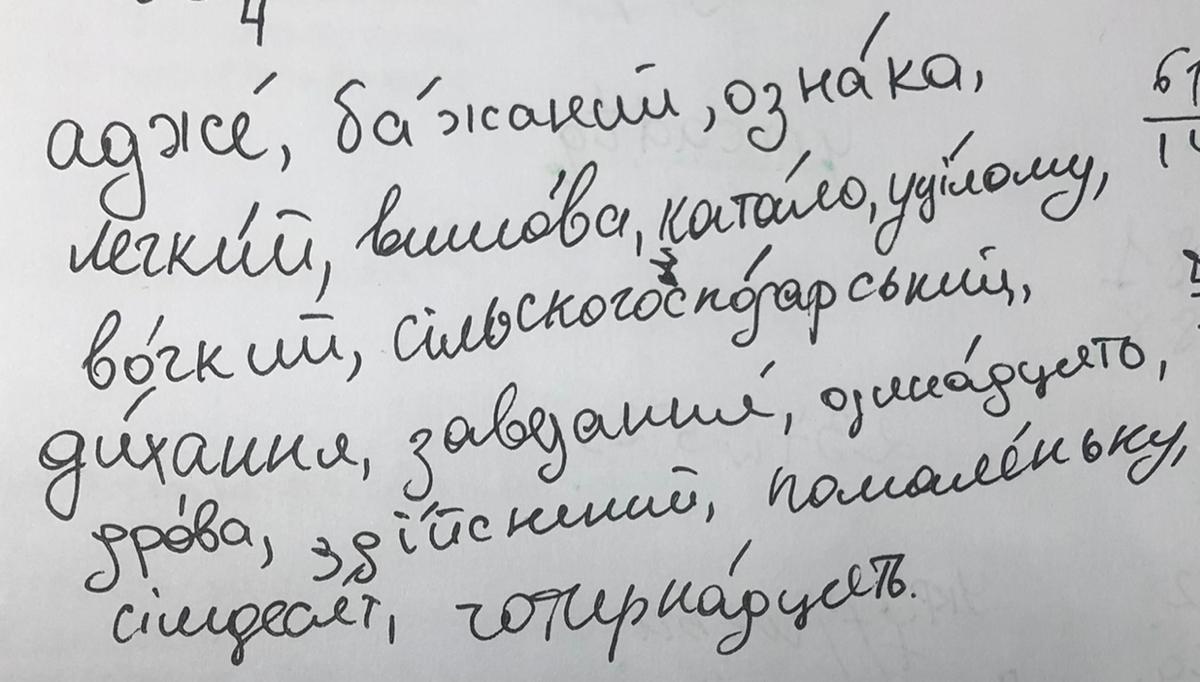 4
адже́, ба́жаний, озна́ка,
легки́й, вимо́ва, ката́ло, уці́лому,
во́гкий, сільськогоспо́дарський,
ди́хання, завдання́, одина́дцять,
дро́ва, зді́йснений, помале́ньку,
сімдесят, чотирна́дцять.